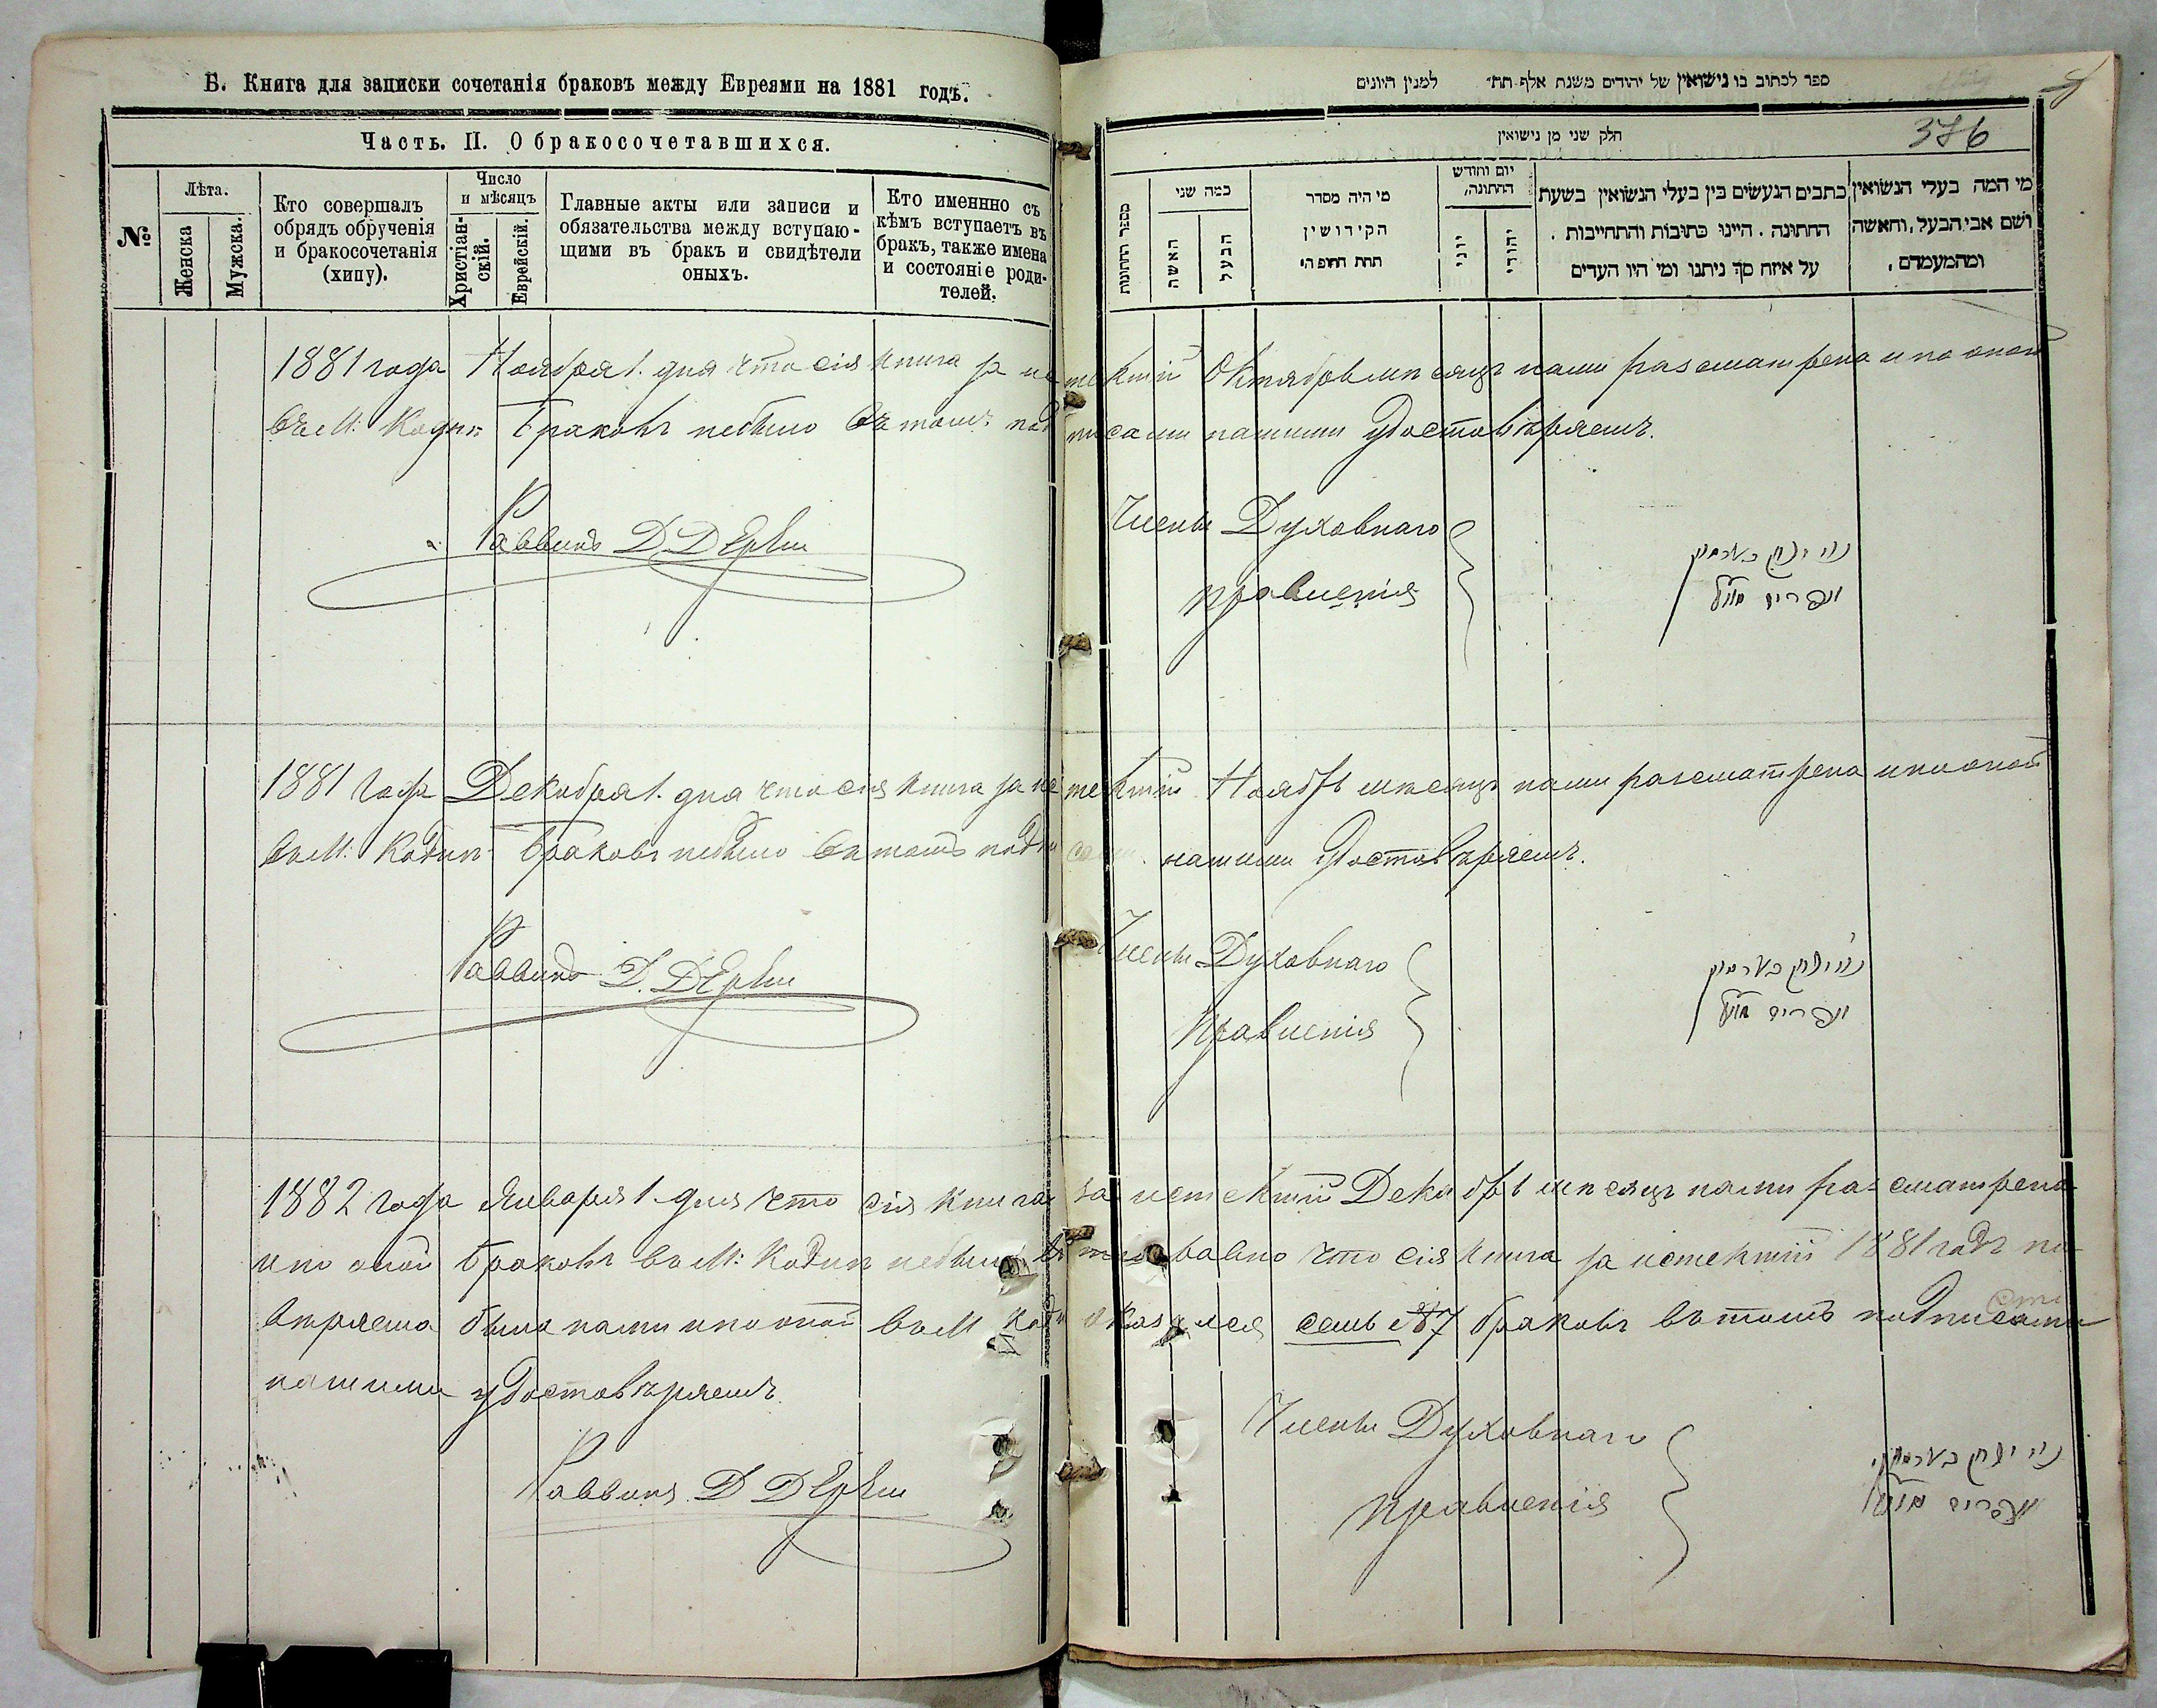 Б. Книга для записки сочетанія браковъ между Евреями на 1881 годъ.
Часть. II. О бракосочетавшихся.
№
Лѣта.
Женска
Мужска.
Кто совершалъ
обрядъ обрученія
и бракосочетанія
(хипу).
Число
и мѣсяцъ
Христіан-
скій.
Еврейскій.
Главные акты или записи и
обязательства между вступаю-
щими въ бракъ и свидѣтели
оныхъ.
Кто именнно съ
кѣмъ вступаетъ въ
бракъ, также имена
и состояніе роди-
телей.
ספר לכתוב בו נישואין של יהודים משנת אלף תת״ למנין היונים
376
חלק שני מן נישואין
מספר החתונות
כמה שני
האשה
הבעל
מי היה מסדר
הקידושין
תחת החופה
יום וחודש
החתונה
יוני
יהודי
כתבים הנעשים בין בעלי הנשואין בשעת
החתונה . היינו כתובות והתחייבות .
על איזה סך ניתנו ומי היו העדים
מי המה בעלי הנשואין
ושם אבי הבעל, והאשה
ומהמעמדם .
1881 года Ноября 1. дня что сія книга за истекшій Октябрь мѣсяцъ нами разсматрена и по оной
въ М: Кодни браковъ небыло въ томъ подписами нашими удостовѣряемъ.
Раввинъ Д. Д
Члены Духовнаго
правленія
1881 года Декабря 1. дня что сія книга за истекшій Ноябрь мѣсяцъ нами разсматрена и по оной
въ М: Кодни браковъ небыло въ томъ подписами нашими удостовѣряемъ.
Раввинъ Д. Д
Члены Духовнаго
правленія
1882 года Января 1. дня что сія книга за истекшій Декабрь мѣсяцъ нами разсматрена
и по оной браковъ въ М: Кодни небыло что сія книга за истекшій 1881 годъ по-
вѣрена была нами и по оной въ М Кодни оказался семь №7 браковъ въ томъ подписами
нашими удостовѣряемъ.
Раввинъ Д Д
Члены Духовнаго
правленія